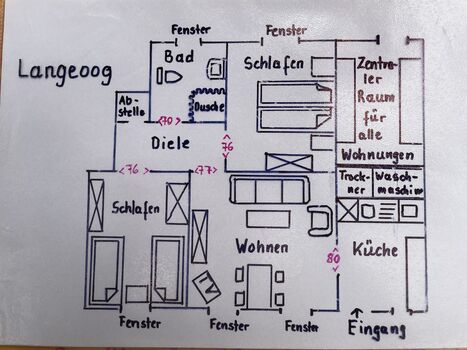 Fenster
Fenster
Langeoog
Bad
Schlafen
Zentra-
ler
Raum
für
alle
Wohnungen
Ab-
stelle
Dusche
<70>
Diele
<76>
<76>
<77>
Trock-
ner
Wasch-
maschine
Schlafen
Wohnen
Küche
<80>
TV
Fenster
Fenster
Fenster
Eingang